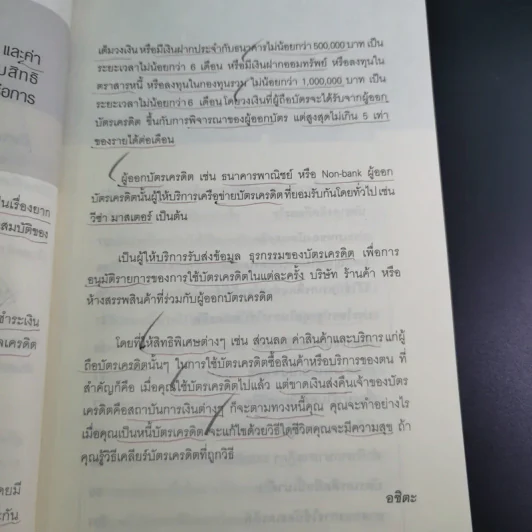 และค่า
สิทธิ
อการ
นเรื่องยาก
สมบัติของ
ชำระเงิน
ครดิต
ดยมี
ะกัน
เต็มวงเงิน หรือมีเงินฝากประจำกับธนาคารไม่น้อยกว่า 500,000 บาท เป็น
ระยะเวลาไม่น้อยกว่า 6 เดือน หรือมีเงินฝากออมทรัพย์ หรือลงทุนใน
ตราสารหนี้ หรือลงทุนในกองทุนรวม ไม่น้อยกว่า 1,000,000 บาท เป็น
ระยะเวลาไม่น้อยกว่า 6 เดือน โดยวงเงินที่ผู้ถือบัตรจะได้รับจากผู้ออก
บัตรเครดิต ขึ้นกับการพิจารณาของผู้ออกบัตร แต่สูงสุดไม่เกิน 5 เท่า
ของรายได้ต่อเดือน
ผู้ออกบัตรเครดิต เช่น ธนาคารพาณิชย์ หรือ Non-bank ผู้ออก
บัตรเครดิตนั้นผู้ให้บริการเครือข่ายบัตรเครดิตที่ยอมรับกันโดยทั่วไป เช่น
วีซ่า มาสเตอร์ เป็นต้น
เป็นผู้ให้บริการรับส่งข้อมูล ธุรกรรมของบัตรเครดิต เพื่อการ
อนุมัติรายการของการใช้บัตรเครดิตในแต่ละครั้ง บริษัท ร้านค้า หรือ
ห้างสรรพสินค้าที่ร่วมกับผู้ออกบัตรเครดิต
โดยที่ให้สิทธิพิเศษต่างๆ เช่น ส่วนลด ค่าสินค้าและบริการ แก่ผู้
ถือบัตรเครดิตนั้นๆ ในการใช้บัตรเครดิตซื้อสินค้าหรือบริการของตน ที่
สำคัญก็คือ เมื่อคุณใช้บัตรเครดิตไปแล้ว แต่ขาดเงินส่งคืนเจ้าของบัตร
เครดิตคือสถาบันการเงินต่างๆ ก็จะตามทวงหนี้คุณ คุณจะทำอย่างไร
เมื่อคุณเป็นหนี้บัตรเครดิต จะแก้ไขด้วยวิธีใดชีวิตคุณจะมีความสุข ถ้า
คุณรู้วิธีเคลียร์บัตรเครดิตที่ถูกวิธี
อชิตะ